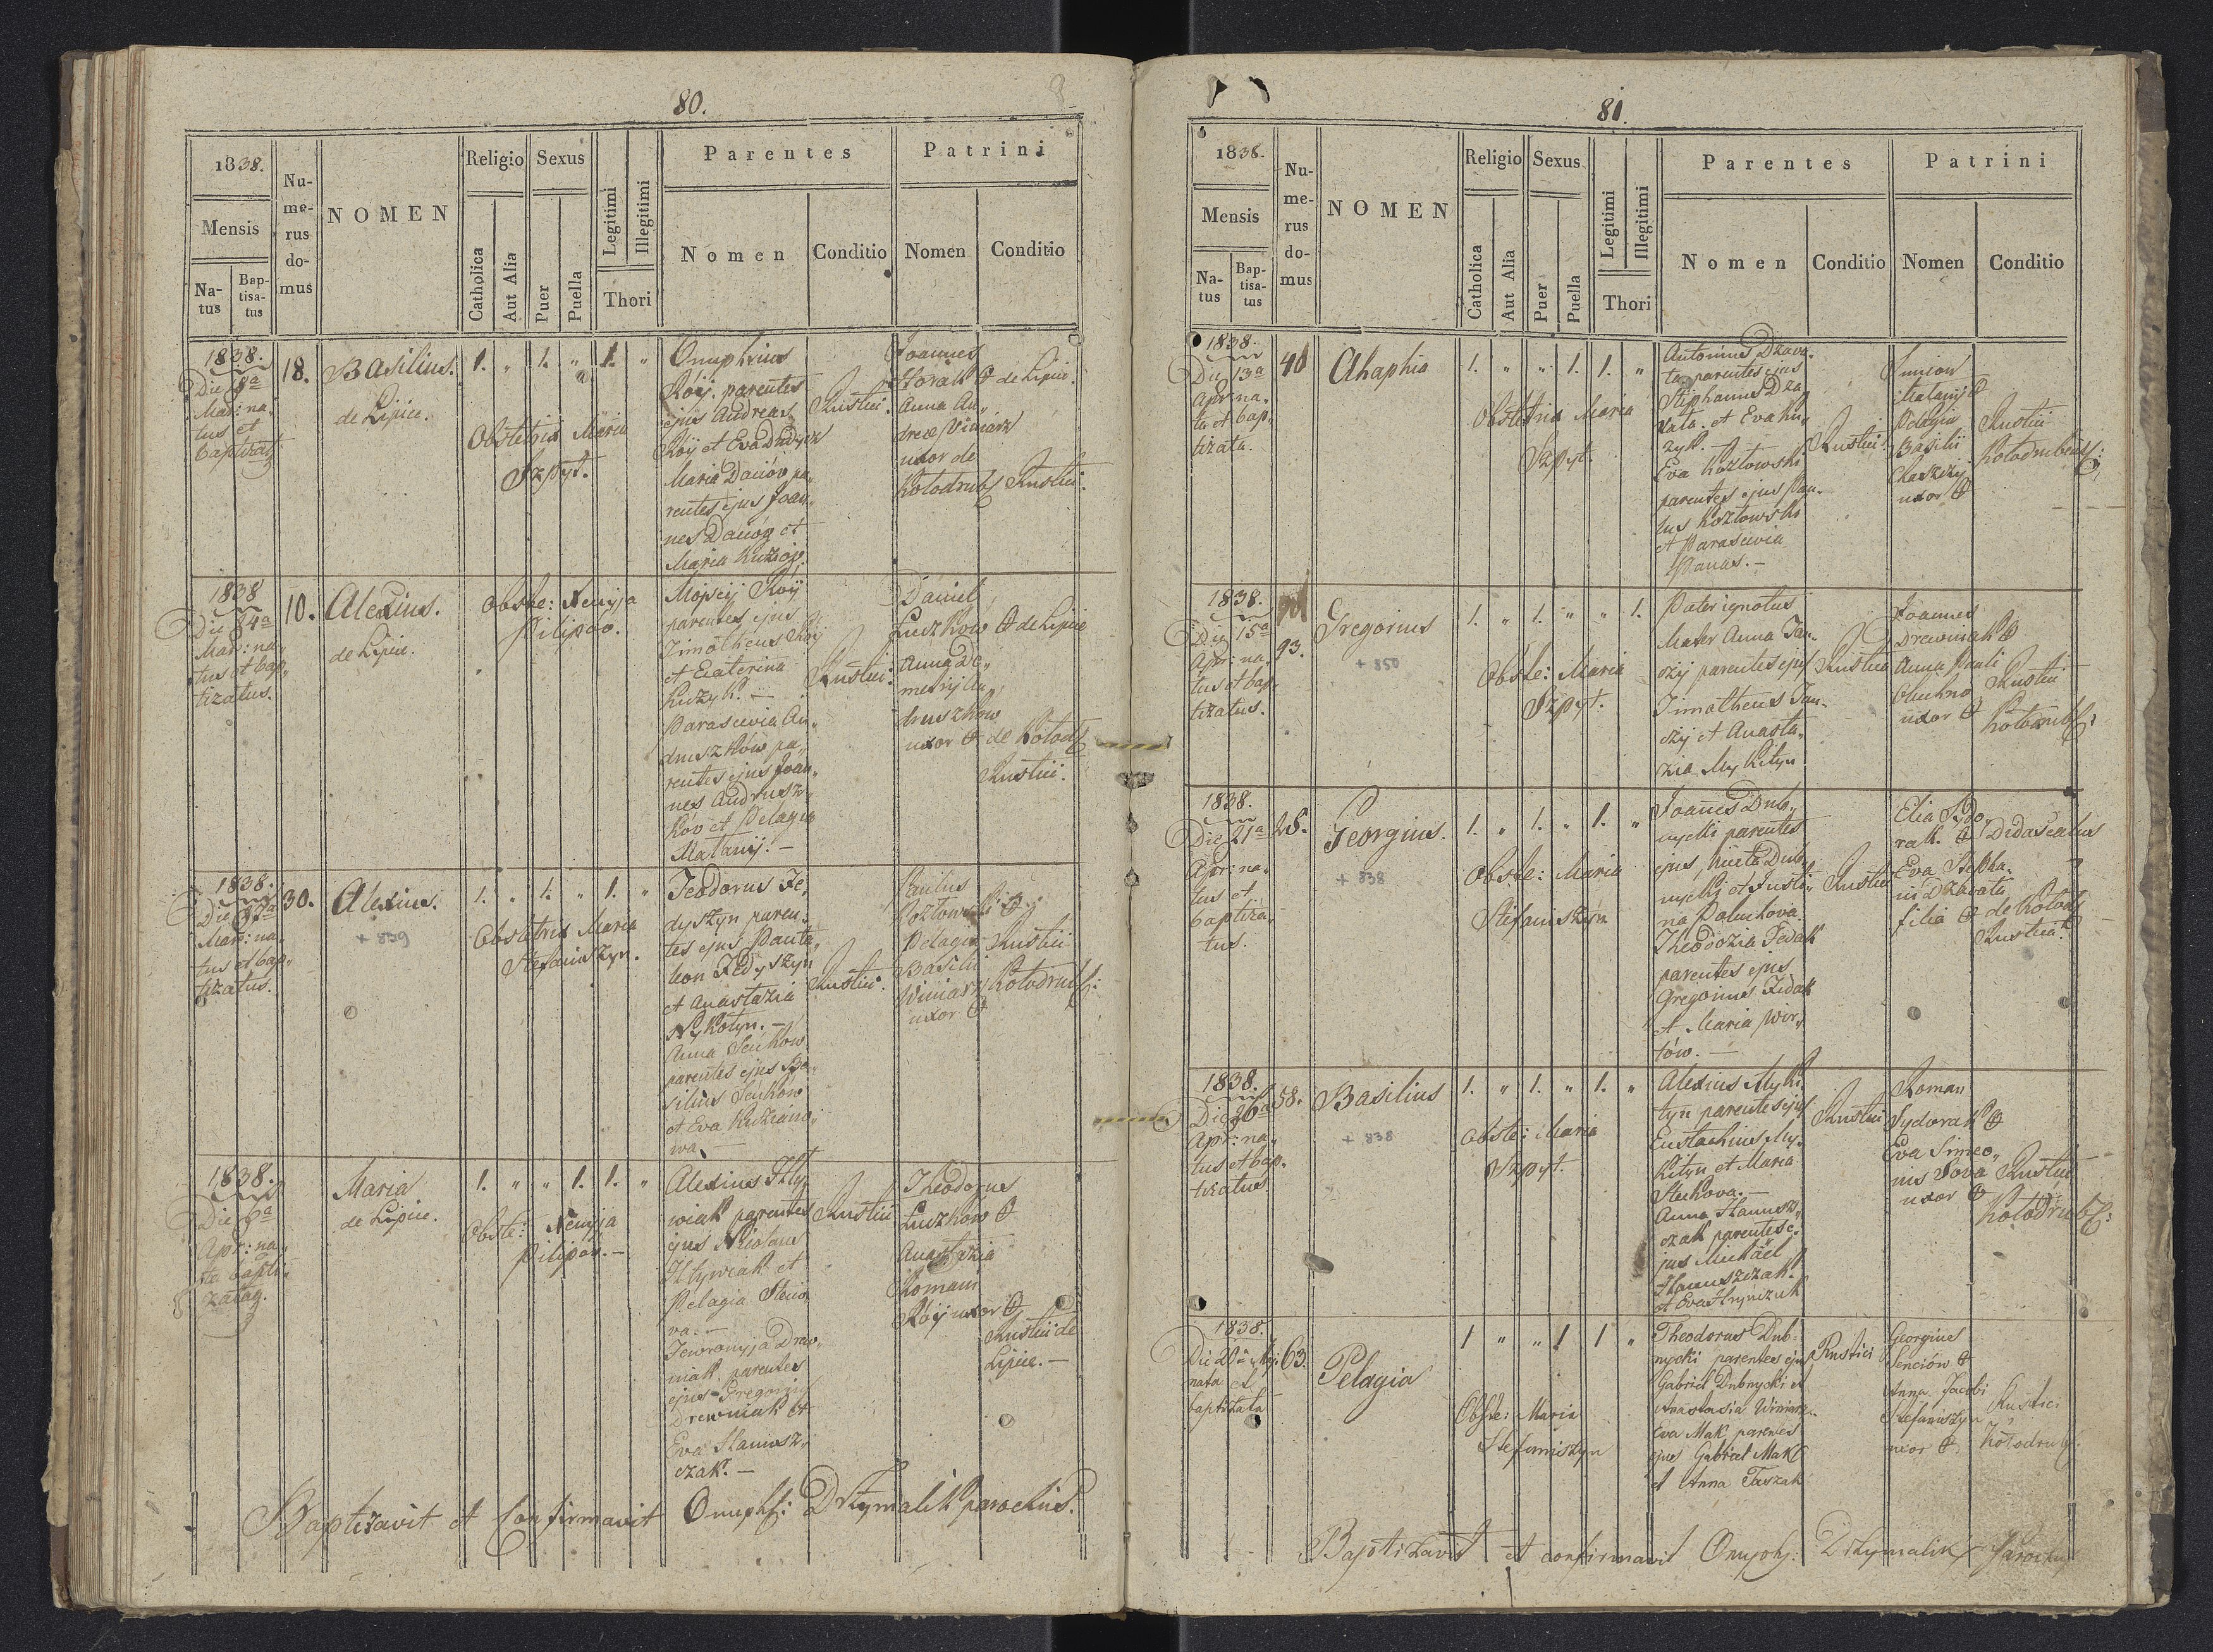 80.
1838.
Mensis
Na-
tus
Bap-
tisa-
tus
Nu-
me-
rus
do-
mus
NOMEN
Religio
Catholica
Aut Alia
Sexus
Puer
Puella
Legitimi
Illegitimi
Thori
Parentes
Nomen
Conditio
Patrini
Nomen
Conditio
1838.
Mar: na„
tus et
baptizat
18.
Basilius.
de Lipice.
1. „ 1. „ 1. „
Obstetrix Maria
Szpyt.
Onuphrius
Róij. parentes
ejus Andreas
Róij et Eva
Maria Daciów pa„
rentes ejus Joan„
nes Daciów et
Maria
Rustici.
Joannes
de Lipice.
Anna An„
dreæ Winiarz
uxor de
Kołodrub Rustici.
1838
Die 24ª
Mar: na„
tus et bap„
tizatus.
10.
Alexius.
de Lipice.
Obste: Xenyja
Pilipów.
Mojseij Róij
parentes ejus
Timotheus Róij
et Ecaterina
Kuzyk. —
Parascevia An„
druszków pa„
rentes ejus Joan„
nes Andrusz„
ków et Pelagia
Matanij. —
Rustici.
Daniel
Łuczków de Lipice
Anna De„
metrij An„
druszków
uxor de Kołod
Rustici.
1838.
Mar: na„
tus et bap„
tizatus.
30.
Alexius.
+ 839
1. „ 1. „ 1. „
Obstetrix Maria
Stefaniszyn.
Teodorus Fe„
dyszyn paren„
tes ejus Pante„
leon Fedyszyn
et Anastazia
Mykotyn. —
Anna Seńków
parentes ejus Ba„
silius Seńków
et Eva Kuziano„
wa. —
Rustici.
Paulus
Kozłowski
Pelagia Rustici
Basilii
Winiarz Kołodrub:
uxor
1838.
Die 6ª
Apr: na„
ta bapti„
zata.
Maria
de Lipice.
1. „ „ 1. 1. „
Obste: Xenyja
Pilipów. —
Alexius Hły„
wiak parentes
ejus Nicolaus
Hływiak et
Pelagia
wa. —
Jewronyja Drew„
niak parentes
ejus Gregorij
Drewniak et
Eva Hanusz„
czak. —
Rustici
Theodorus
Łuczków
Anastazia
Romani
Róij uxor
Rustici de
Lipice. —
Baptizavit et Confirmavit Onuph: Drzymalik parochus.
81.
1838.
Mensis
Na-
tus
Bap-
tisa-
tus
Nu-
me-
rus
do-
mus
NOMEN
Religio
Catholica
Aut Alia
Sexus
Puer
Puella
Legitimi
Illegitimi
Thori
Parentes
Nomen
Conditio
Patrini
Nomen
Conditio
1838.
Die 13ª
Apr: na„
ta et bap„
tizata.
40
Ahaphia
1. „ „ 1. 1. „
Obstetrix Maria
Szpyt.
Antonius Dzava„
ta parentes ejus
Stephanus Dza„
vata et Eva Ku„
zyk.
Eva Kozłowski
parentes ejus Pau„
lus Kozłowski
et Parascevia
Panas. —
Rustici.
Simion
Matanij
Pelagia Rustici
Basilii Kołodrub:
uxor
1838.
Die 15ª
Apr: na„
tus et bap„
tizatus.
93.
Gregorius
+ 850
1. „ 1. „ „ 1.
Obste: Maria
Szpyt.
Pater ignotus
Mater Anna Jan„
czij parentes ejus
Timotheus Jan„
czij et Anasta„
zia Mykityn
Rustica
Joannes
Drewniak
Anna Pauli
Oluchno Rustici
uxor Kołodrub:
1838.
Die 21ª
Apr: na„
tus et
baptiza„
tus.
28.
Georgius.
+ 838
1. „ 1. „ 1. „
Obste: Maria
Stefaniszyn
Joannes Dub„
nycki parentes
ejus, Dub„
nycki et Justi„
na Paluchova.
Theodozia Fedak
parentes ejus
Gregorius Fedak
et Maria Wor„
tów. —
Rustici
Elia Sydo„
rak. Didascalus
Eva Stepha„
ni Dzavata
filia de Kołod
Rustica.
1838.
Die 26ª
Apr: na„
tus et bap„
tizatus.
58.
Basilius
+ 838
1. „ 1. „ 1. „
Obste: Maria
Szpyt.
Alexius Myki„
tyn parentes ejus
Eustachius My„
kityn et Maria
Stechova. —
Anna Hanusz„
czak parentes e„
jus Michael
Hanuszczak
et Eva Hrynczuk
Rustici
Roman
Sydorak
Eva Simeo„
nis Sova Rustici
uxor Kołodrub:
1838.
nata et
baptizata
63.
Pelagia
1 „ „ 1 1 „
Obste: Maria
Stefaniszyn
Theodorus Dub„
nycki parentes ejus
Gabriel Dubnycki et
Anastasia Winiarz„
Eva Mak parentes
ejus Gabriel Mak
et Anna Taszak
Rustici
Georgius
Senciów
Anna Jacobi
Stefaniszyn Rustici
uxor Kołodrub.
Baptizavit et confirmavit Onuph: Drzymalik Parochus